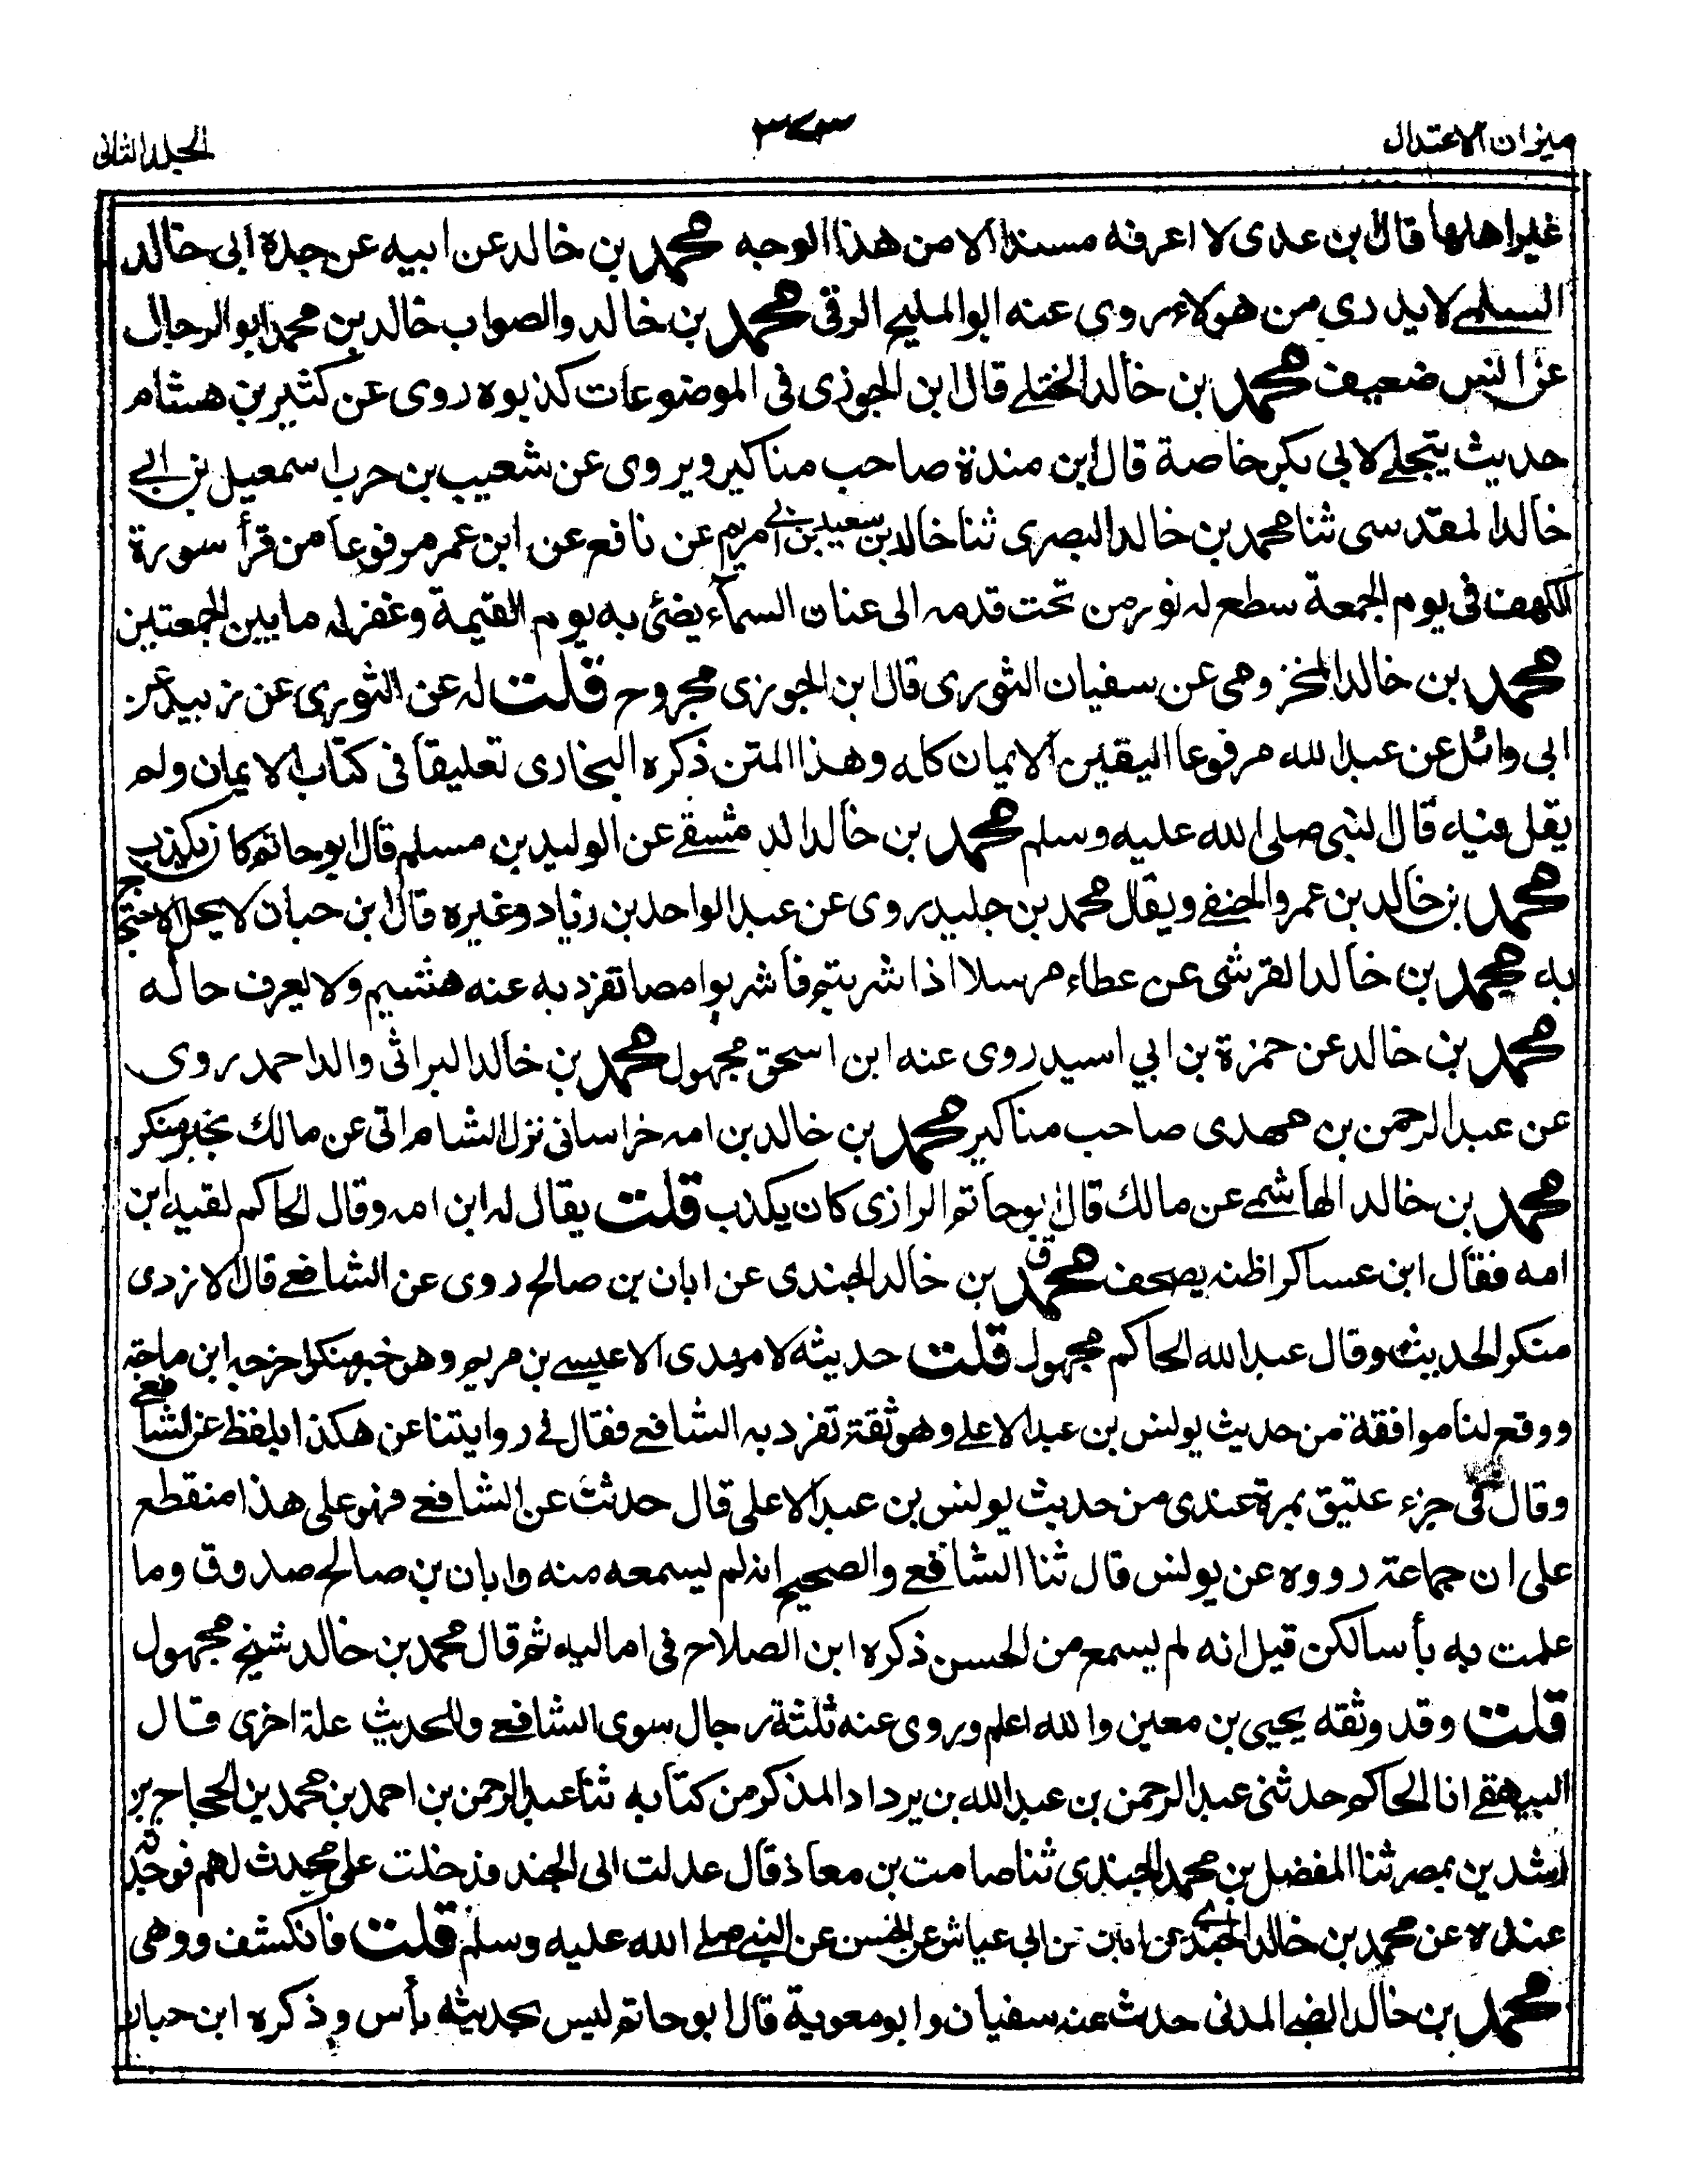 ميزان الاعتدال
٣٧٣
الجلد الثانى
غير اهلها قال ابن عدى لا اعرفه مسندا الا من هذا الوجه محمد بن خالد عن ابيه عن جده ابى خالد
السلمى لا يدرى من هولاء روى عنه ابو المليح الرقى محمد بن خالد والصواب خالد بن محمد ابو الرحال
عن انس ضعيف محمد بن خالد الختلى قال ابن الجوزى فى الموضوعات كذبوه روى عن كثير بن هشام
حديث يتجلى لابى بكر خاصة قال ابن مندة صاحب مناكير ويروى عن شعيب بن حرب اسمعيل بن ابى
خالد المقدسى ثنا محمد بن خالد البصرى ثنا خالد بن سعيد بن ابى مريم عن نافع عن ابن عمر مرفوعا من قرأ سورة
الكهف فى يوم الجمعة سطع له نور من تحت قدمه الى عنان السماء يضئ به يوم القيمة وغفر له ما بين الجمعتين
محمد بن خالد المخزومى عن سفيان الثورى قال ابن الجوزى مجروح قلت له عن الثورى عن زبيد عن
ابى وائل عن عبد الله مرفوعا اليقين الايمان كله وهذا المتن ذكره البخارى تعليقا فى كتاب الايمان ولم
يقل فيه قال النبى صلى الله عليه وسلم محمد بن خالد الدمشقى عن الوليد بن مسلم قال ابو حاتم كان يكذب
محمد بن خالد بن عمرو الحنفى ويقال محمد بن خليد روى عن عبد الواحد بن زياد وغيره قال ابن حبان لا يحل الاحتجاج
به محمد بن خالد القرشى عن عطاء مرسلا اذا شربتم فاشربوا مصا تفرد به عنه هشيم ولا يعرف حاله
محمد بن خالد عن حمزة بن ابي اسيد روى عنه ابن اسحق مجهول محمد بن خالد البراثى والد احمد روى
عن عبد الرحمن بن مهدى صاحب مناكير محمد بن خالد بن امه خراسانى نزل الشام اتى عن مالك بخبر منكر
محمد بن خالد الهاشمى عن مالك قال ابو حاتم الرازى كان يكذب قلت يقال له ابن امه وقال الحاكم لقبه ابن
امه فقال ابن عساكر اظنه يصحف محمد ق بن خالد الجندى عن ابان بن صالح روى عن الشافعى قال الازدى
منكر الحديث وقال عبد الله الحاكم مجهول قلت حديثه لا مهدى الا عيسى بن مريم وهو خبر منكر اخرجه ابن ماجة
ووقع لنا موافقة من حديث يونس بن عبد الاعلى وهو ثقة تفرد به الشافعى فقال فى روايتنا عن هكذا بلفظ عن الشافعى
وقال فى جزء عتيق بمرة عندى من حديث يونس بن عبد الاعلى قال حدثت عن الشافعى فهو على هذا منقطع
على ان جماعة رووه عن يونس قال ثنا الشافعى والصحيح انه لم يسمعه منه وابان بن صالح صدوق وما
علمت به بأسا لكن قيل انه لم يسمع من الحسن ذكره ابن الصلاح فى اماليه ثم قال محمد بن خالد شيخ مجهول
قلت وقد وثقه يحيى بن معين والله اعلم وروى عنه ثلثة رجال سوى الشافعى وللحديث علة اخرى قال
البيهقى انا الحاكم حدثنى عبد الرحمن بن عبد الله بن يرداد المذكر من كتابه ثنا عبد الرحمن بن احمد بن محمد بن الحجاج بن
رشدين بمصر ثنا المفضل بن محمد الجندى ثنا صامت بن معاذ قال عدلت الى الجند فدخلت على محدث لهم فوجدته
عنده عن محمد بن خالد الجندى عن ابان بن ابى عياش عن الحسن عن النبى صلى الله عليه وسلم قلت فانكشف ووهى
محمد بن خالد الضبى المدنى حدث عنه سفيان وابو معوية قال ابو حاتم ليس بحديثه بأس وذكره ابن حبان